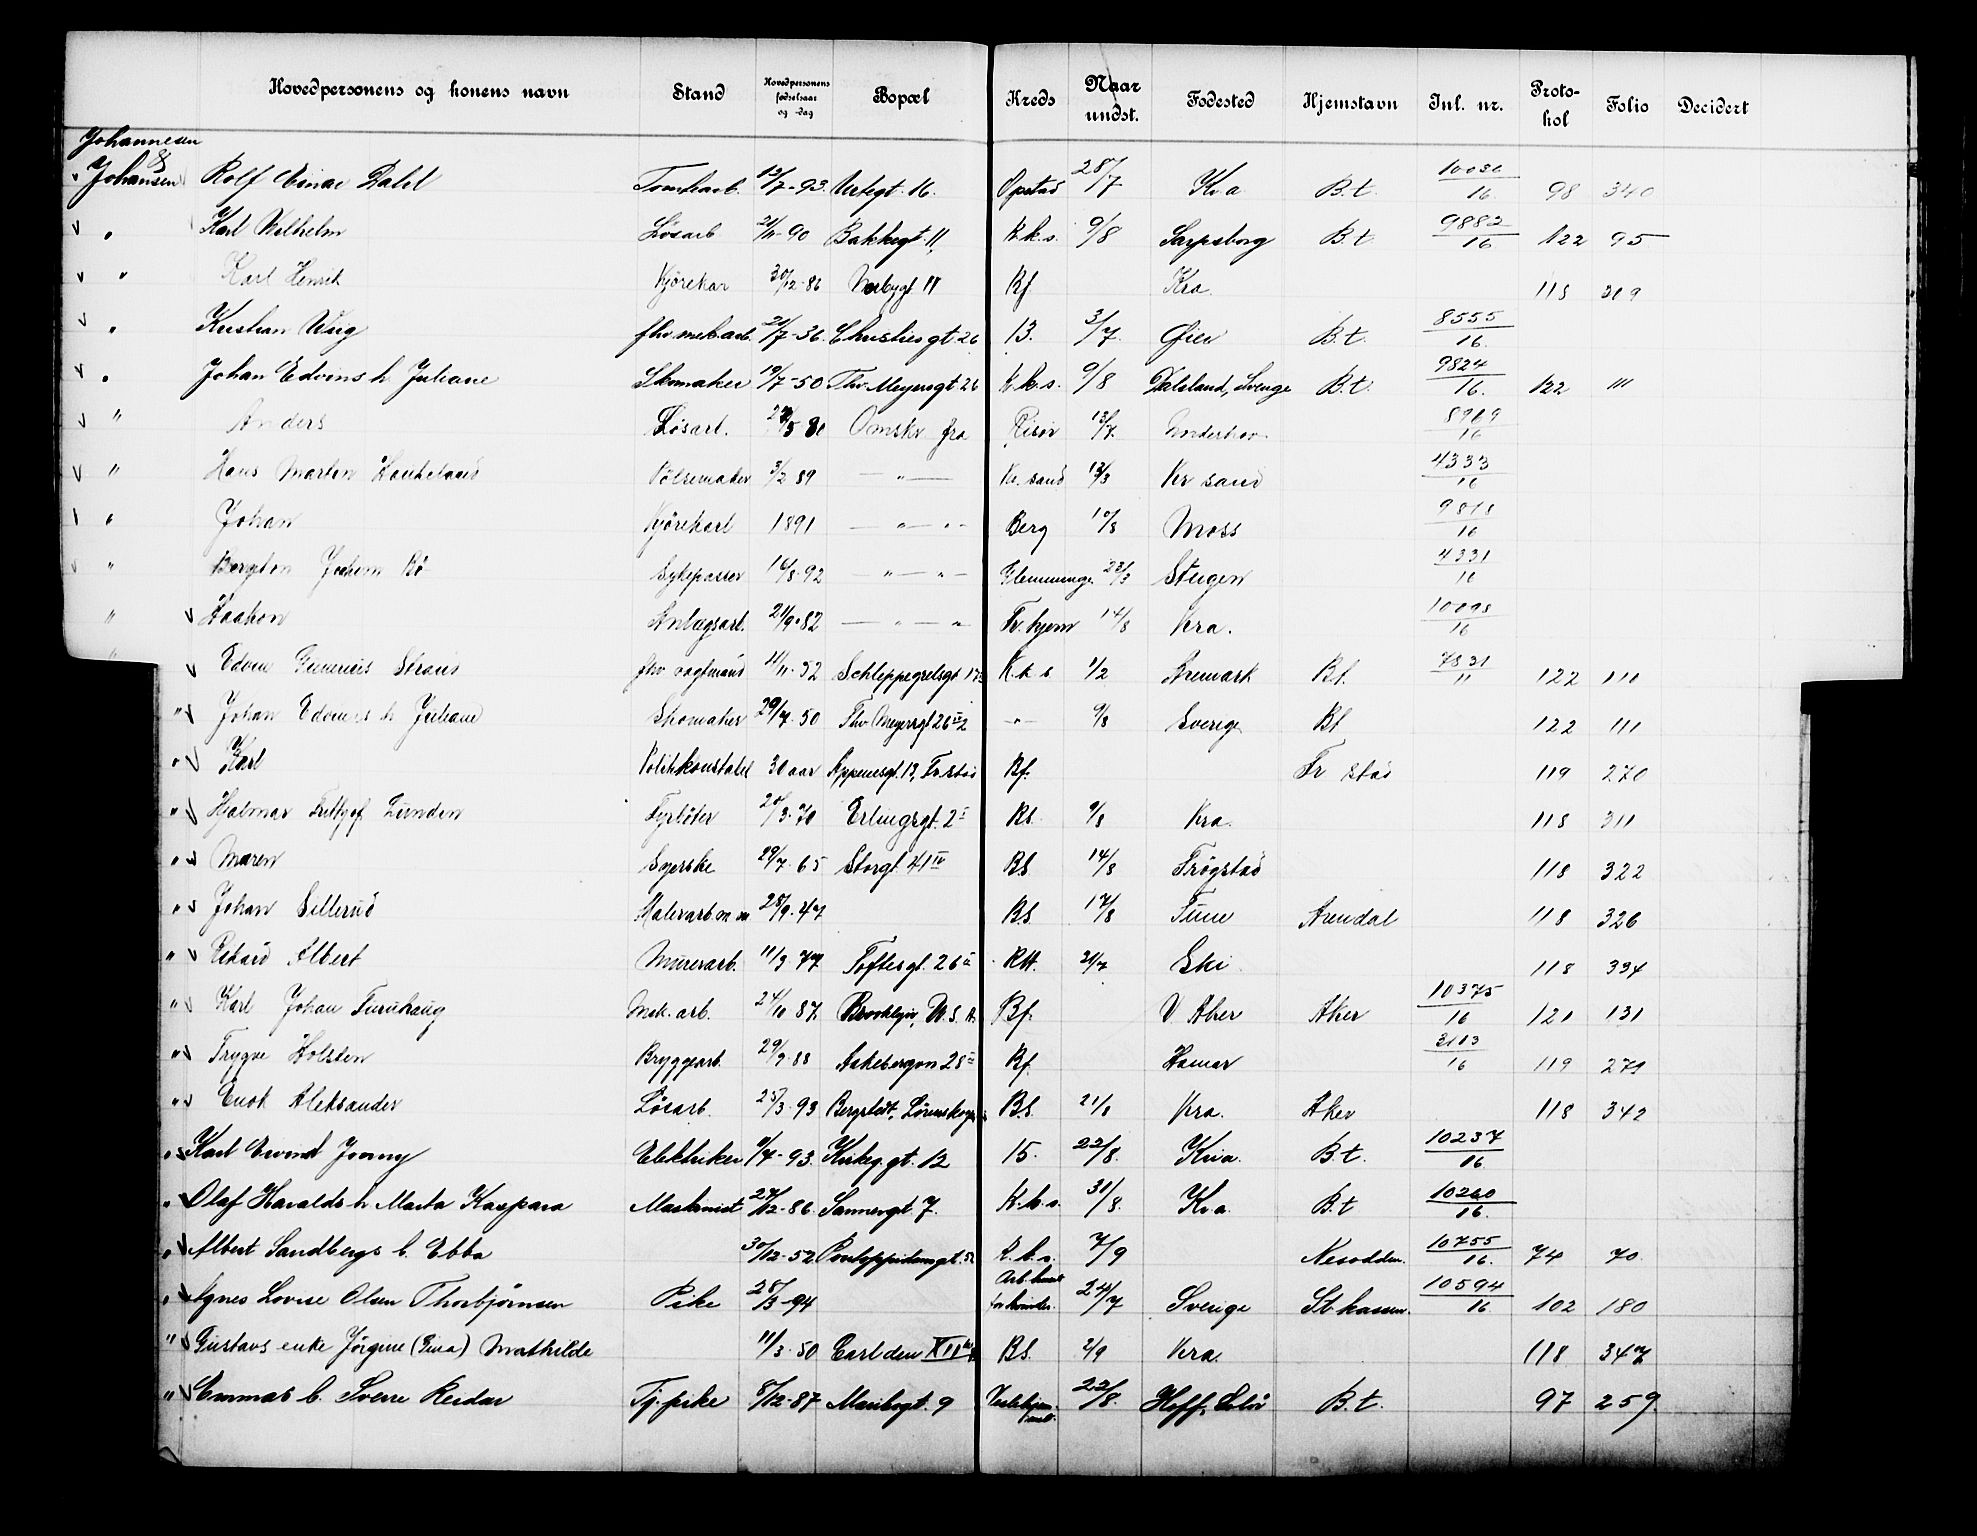 Hovedpersonens og konens navn | Stand | Hovedpersonens fødselsaar og -dag | Bopæl | Kreds | Naar undst. | Fødested | Hjemstavn | Inl. nr. | Proto-kol | Folio | Decidert
Johannesen &
Johansen Rolf Einar Dahl | Tomtearb. | 12/7-93 | Vertsgt. 16. | Opstad | 28/7 | Kr.a | B.t. | 10030/16 | 98 | 340
" Karl Vilhelm | Løsarb | 21/11-90 | Bakkegt 11, | K.k.s. | 9/8 | Sarpsborg | B.t. | 9882/16 | 122 | 95
" Karl Henrik | Kjørekar | 30/12-86 | Norbygt 11 | Rf | | Kra. | | | 118 | 319
" Kristian Wiig | fhv. mek.arb. | 21/7-36. | Christiesgt. 26 | 13. | 3/7. | Øier | B.t. | 8555/16.
" Johan Edvins h. Juliane | Skomaker | 19/7-50 | Thv. Meyersgt 26 | K.k.s. | 9/8 | Dalsland, Sverige | B.t. | 9824/16. | 122 | 111
" Anders | Løsarb. | | Omstr. fra | Risør | 13/7 | | | 8969/16
" Hans Morten Haukeland | Pølsemaker | 3/2 89 | — " — | Kr. sand | 13/3 | Kr sand | | 4333/16
" Johan | Kjørekarl | 1891 | — " — " — | Berg | 10/8 | Moss | | 9818/16
" Bergton Jochem Bö | Sykepasser | 14/8-92 | " — " — | Glemminge | 23/3 | Steigen | | 4331/16
" Haakon | Anlægsarb. | 21/9-82 | — " — " | Fr. hjem | 14/8 | Kra. | | 10098/16
" Edvin Severius Straus | fhv vagtmand | 11/11-52 | Schleppegrelsgt 17 | K.k.s | 1/2 | Aremark | Bt. | 7831/11 | 122 | 110
" Johan Edvins h Juliane | Skomaker | 29/7-50 | Thv Meyersgt 26 2 | — " — | 9/8 | Sverige | Bt | | 122 | 111
" Karl | Politikonstabel | 30 aar | Kppenesgt. 13, Fr.stad | Rf. | | | Fr stad | | 119 | 270
" Hjalmar Fritjof Lunden | Fyrbøter | 20/3-70 | Erlingsgt. 2 I | Rs. | 9/8 | Kra. | | | 118 | 311
" Maren | Syerske | 29/7-65 | Storgt. 41 IV | Bs | 14/8 | Trøgstad | | | 118 | 322
" Johan Sillerud | Malerarb m m | 28/9-47 | | Bs. | 17/8 | Tune | Arendal | | 118 | 326
" Rikard Albert | Murerarb. | 11/3-77 | Toftesgt. 26 II | Rtt. | 21/7 | Ski | | | 118 | 334
" Karl Johan Furuhaug | Mek. arb. | 24/10 87 | Brooklyn, U.S.A. | Bf. | | V. Aker | Aker | 10375/16 | 121 | 131
" Trygve Holsten | Bryggearb. | 29/9-88 | Aakebergvn 28 II | Rf. | | Hamar | | 3103/16 | 119 | 279
" Enok Aleksander | Løsarb. | 25/3-93 | Bergstedt, Lørenskogen | Bs. | 21/8 | Kra. | Aker | | 118 | 342
" Karl Eivind Jonny | Elektriker | 9/4-93. | Kirkeg.gt. 12 | 15. | 22/8. | Kria. | B.t. | 10237/16.
" Olaf Haralds h Marta Kaspara | Maskinist | 27/12-86. | Sannergt. 7. | K.k.s. | 31/8. | Kr.a. | B.t | 10260/16.
" Albert Sandbergs b. Ebba | | 30/12-52 | Pontoppidansgt. 5 | K.k.s. | 7/9 | | Nesodden. | 10755/16. | 74 | 70.
" Agnes Lovise Olsen Thorbjørnsen | Pike | 28/3-94 | | Arb. huset for kvinder. | 24/7 | Sverige | St. kassen. | 10594/16 | 102 | 180
" Gustavs enke Jørgine (Gina) Mathilde | | 11/3-50 | Carl den XII | Bs. | 2/9 | Kra. | | | 118 | 347
" Emmas b. Sverre Reidar | Tj. pike | 8/12-87 | Maribogt. 9 | | 22/8. | Hoff, Solør | B.t. | | 97 | 259.